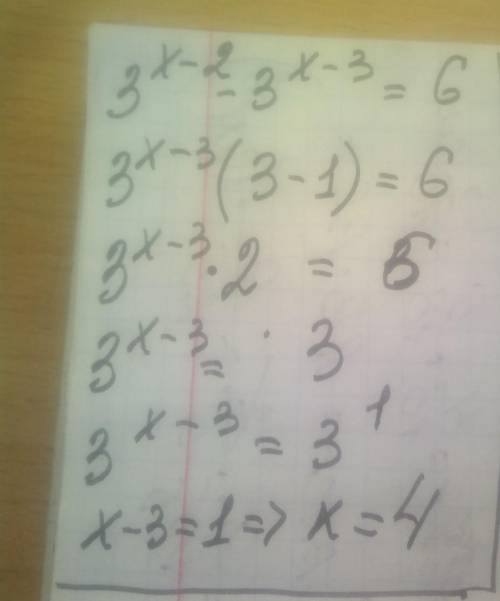 3^{x-2} - 3^{x-3} = 6
3^{x-3}(3-1) = 6
3^{x-3} · 2 = 6
3^{x-3} = 3
3^{x-3} = 3^1
x-3=1 => x=4